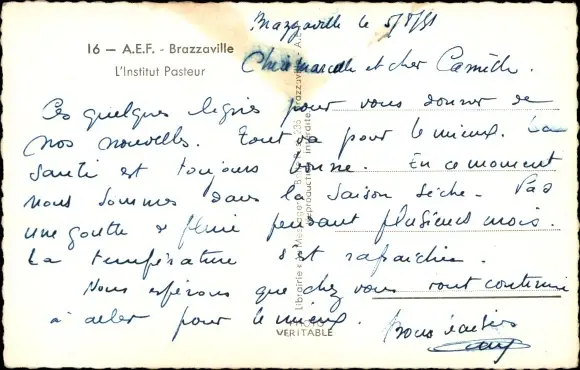 Brazzaville le 5/8/51
16 — A.E.F. - Brazzaville
L'Institut Pasteur
Chère Marcelle et cher Camille.
Ces quelques lignes pour vous donner de
nos nouvelles. Tout va pour le mieux. La
santé est toujours bonne. En ce moment
nous sommes dans la saison sèche. Pas
une goutte de pluie pendant plusieurs mois.
La température s'est rafraichie.
Nous espérons que chez vous tout continue
à aller pour le mieux. Bons baisers
Librairie Messageries Brazzaville - A.E.
Reproduction interdite
PHOTO
VERITABLE